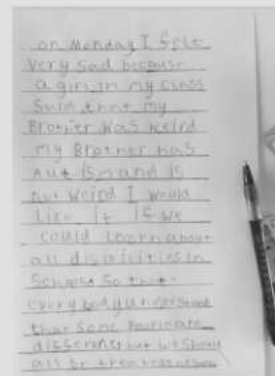 on Monday I felt
very sad because
a girl in my class
Said that my
Brother was weird
my Brother has
Autism and is
not weird I would
like it if we
could learn about
all disabilities in
School so that
everybody understand
that some
but we should
all be treated